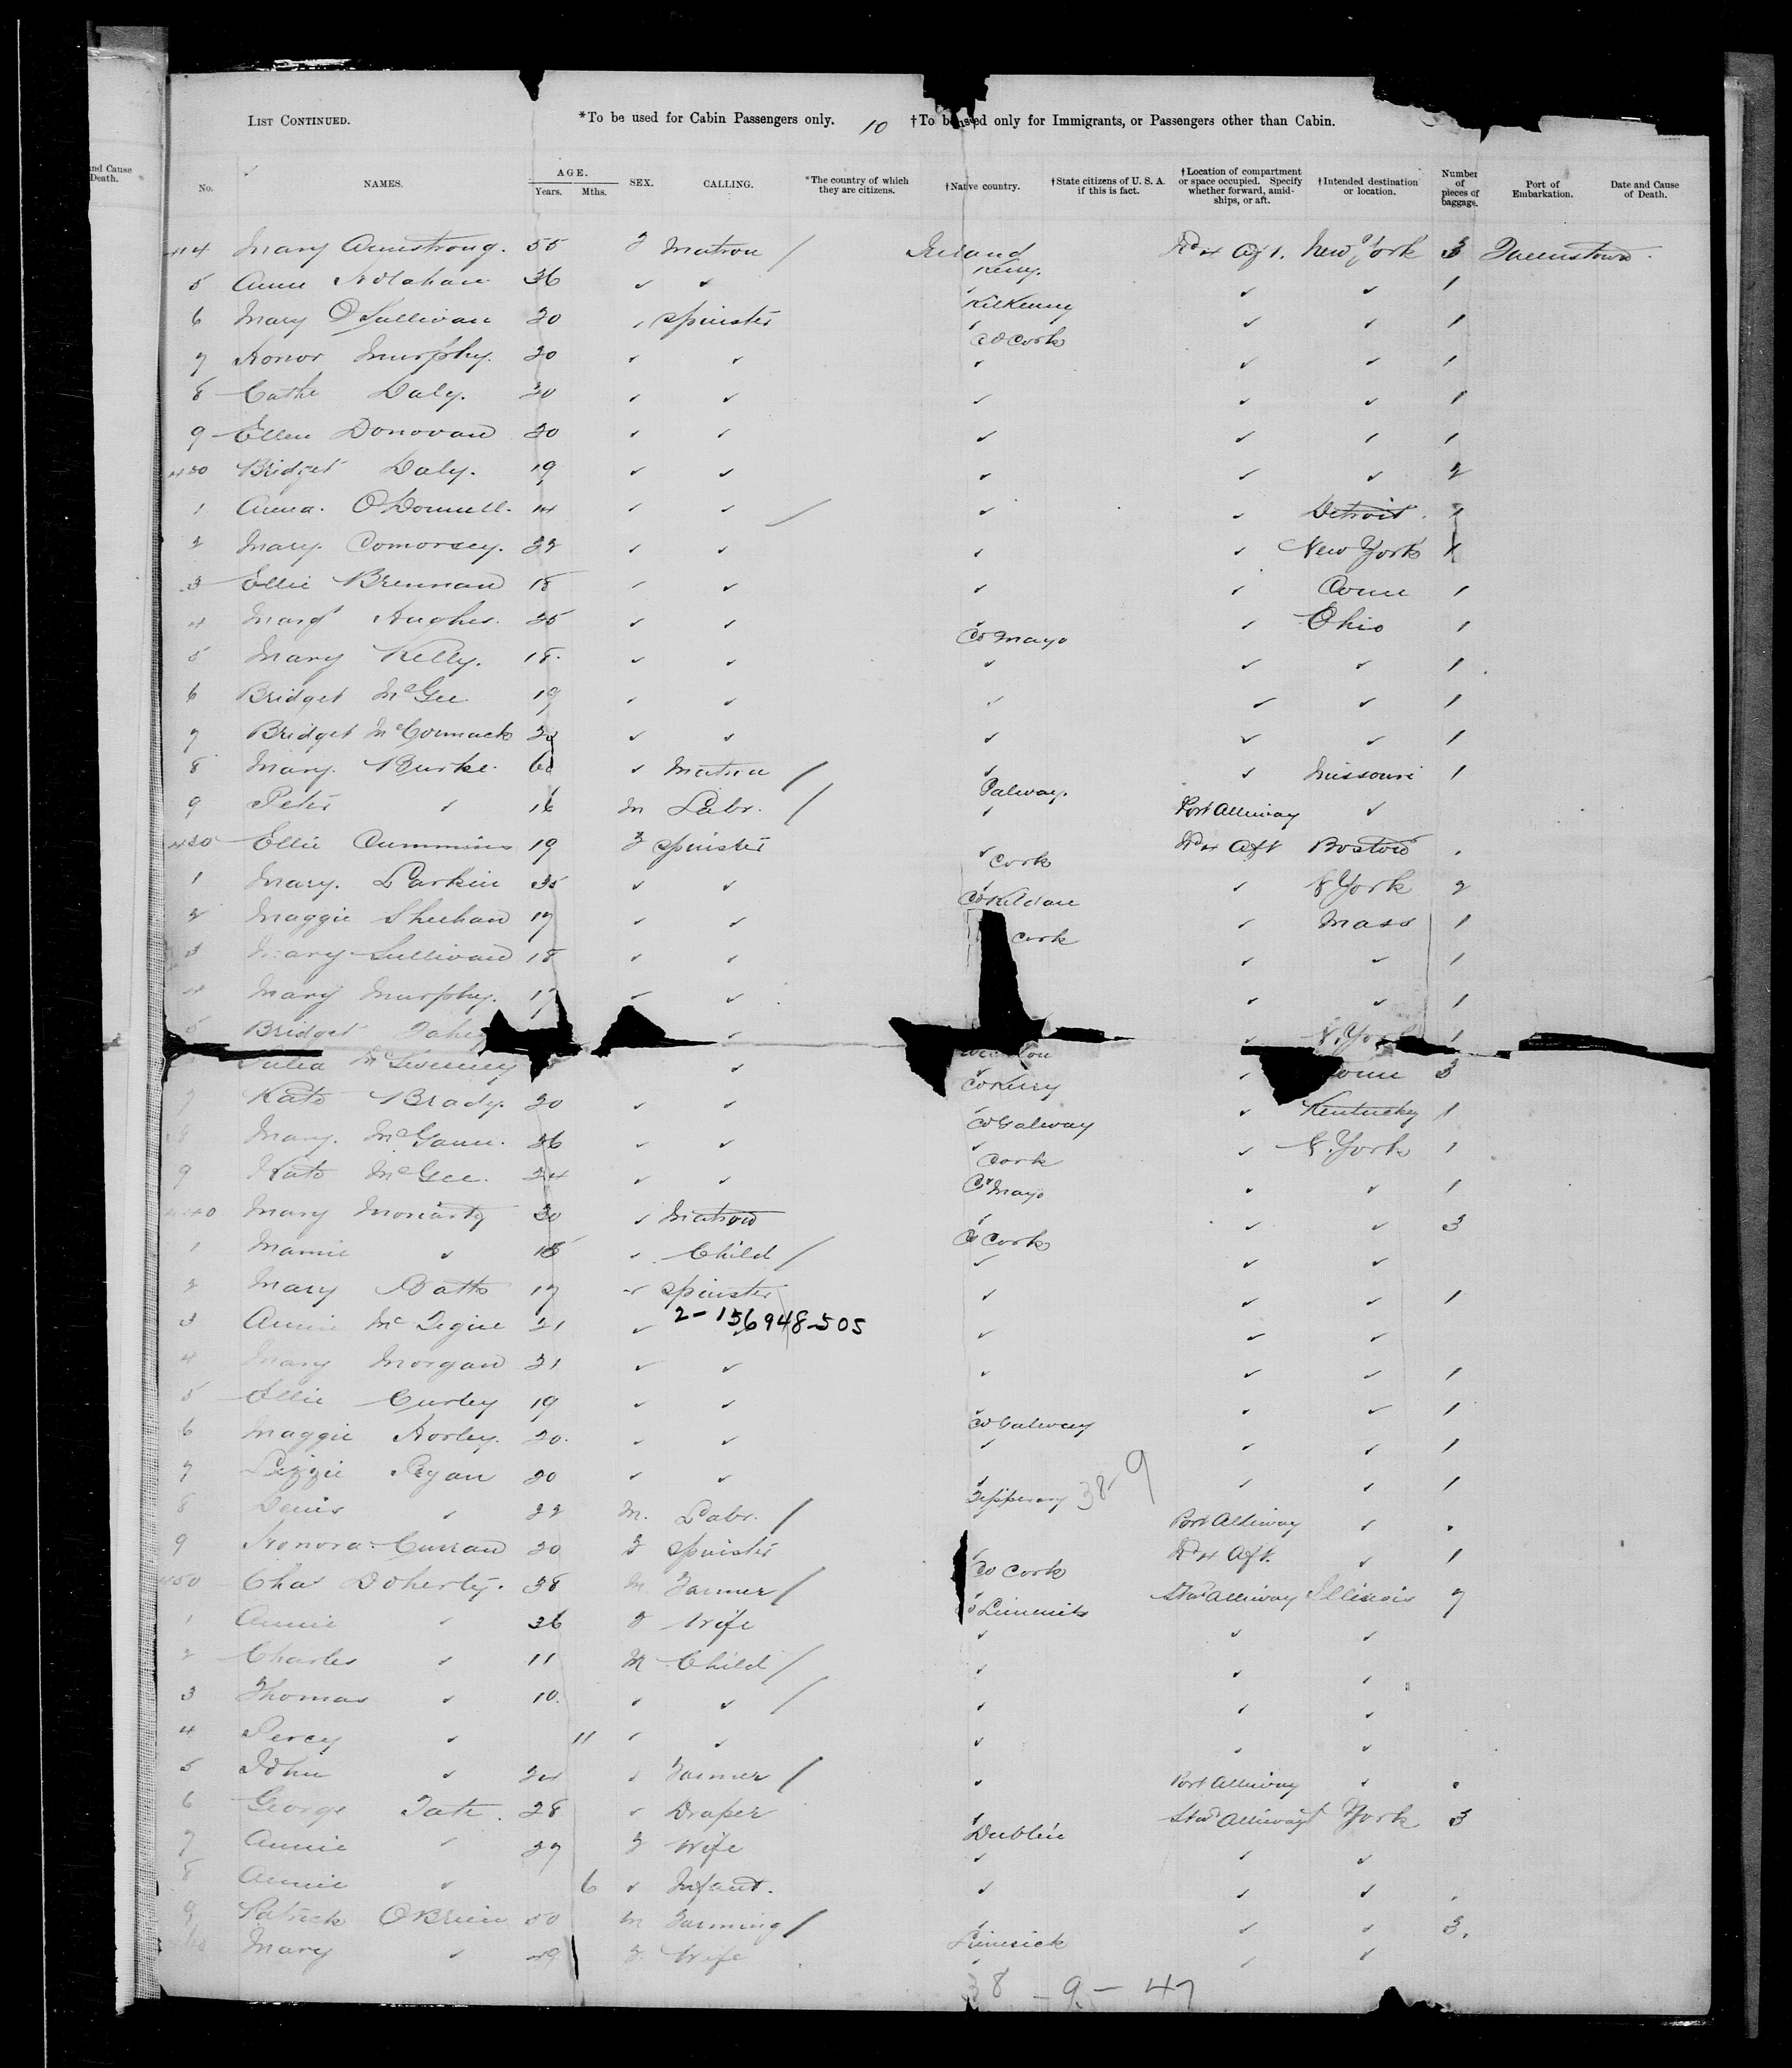 and Cause
Death.
LIST CONTINUED. *To be used for Cabin Passengers only. 10 †To be used only for Immigrants, or Passengers other than Cabin.
No. NAMES. AGE. Years. Mths. SEX. CALLING. *The country of which they are citizens. †Native country. †State citizens of U. S. A. if this is fact. †Location of compartment or space occupied. Specify whether forward, amidships, or aft. †Intended destination or location. Number of pieces of baggage. Port of Embarkation. Date and Cause of Death.
414 Mary Armstrong. 55 F Matron / Ireland Kerry. Aft. New York 3 Queenstown
5 Annie 36 ✓ ✓ Kilkenny ✓ ✓ 1
6 Mary O'Sullivan 20 ✓ Spinster Co Cork ✓ ✓ 1
7 Honor Murphy. 20 ✓ ✓ ✓ ✓ ✓ 1
8 Cathe Daly. 20 ✓ ✓ ✓ ✓ ✓ 1
9 Ellen Donovan 20 ✓ ✓ ✓ ✓ ✓ 1
420 Bridget Daly. 19 ✓ ✓ ✓ ✓ ✓ 2
1 Anna. O'Donnell. 14 ✓ ✓ / ✓ ✓ Detroit. 1
2 Mary. Comorsey. 22 ✓ ✓ ✓ ✓ New York 1
3 Ellie Brennan 18 ✓ ✓ ✓ ✓ Conn 1
4 Margt Hughes. 25 ✓ ✓ Co Mayo ✓ Ohio 1
5 Mary Kelly. 18. ✓ ✓ ✓ ✓ ✓ 1
6 Bridget McGee 19 ✓ ✓ ✓ ✓ ✓ 1
7 Bridget McCormack ✓ ✓ ✓ ✓ ✓ 1
8 Mary. Burke. 60 ✓ Matron / Galway. ✓ Missouri 1
9 Peter ✓ 16 M Labr. / ✓ Port Alliway ✓
430 Ellie Cummins 19 F Spinster Cork Aft Boston
1 Mary. Larkin 35 ✓ ✓ Co Kildare ✓ N York 2
2 Maggie Sheehan 17 ✓ ✓ Cork ✓ Mass 1
3 Mary Sullivan 18 ✓ ✓ ✓ ✓ 1
4 Mary Murphy. 17 ✓ ✓ ✓ ✓ 1
5 Bridget ✓ ✓ N. York 1
Julia McSweeney ✓ Co Kerry ✓ 3
7 Kate Brady. 20 ✓ ✓ Co Galway ✓ Kentucky 1
8 Mary. McGann. 26 ✓ ✓ Cork ✓ N. York 1
9 Kate McGee. 24 ✓ ✓ Co Mayo ✓ ✓ 1
440 Mary Moriarty 30 ✓ Matron Co Cork ✓ ✓ 3
1 Mamie ✓ ✓ Child / ✓ ✓ ✓
2 Mary 17 ✓ Spinster ✓ ✓ ✓ 1
2-156948-505
3 Annie McTigue 21 ✓ ✓ ✓ ✓
4 Mary Morgan 21 ✓ ✓ ✓ ✓ ✓ 1
5 Ellie Curley 19 ✓ ✓ Co Galway ✓ ✓ 1
6 Maggie Horley. 20. ✓ ✓ ✓ ✓ ✓ 1
7 Lizzie Ryan 20 ✓ ✓ Tipperary 38-9 ✓ ✓ 1
8 Denis ✓ 22 M. Labr. / Port Alliway ✓
9 Honora Curran 20 F Spinster Co Cork Aft. ✓ 1
450 Chas Doherty. 38 M. Farmer / Co Limerick Stwd Alliway Illinois 7
1 Annie ✓ 36 F Wife ✓ ✓ ✓
2 Charles ✓ 11 M Child / ✓ ✓ ✓
3 Thomas ✓ 10. ✓ ✓ / ✓ ✓ ✓
4 Percy ✓ 11 ✓ ✓ ✓ ✓ ✓
5 John ✓ 24 ✓ Farmer / ✓ Port Alliway ✓
6 George Tate. 28 ✓ Draper Dublin Stwd Alliway York 3
7 Annie ✓ 27 F Wife ✓ ✓ ✓
8 Annie ✓ 6 ✓ Infant. ✓ ✓ ✓
9 Patrick O'Brien 50 M Farming / Limerick ✓ ✓ 3.
460 Mary ✓ 49 F. Wife ✓ ✓
38 - 9 - 47